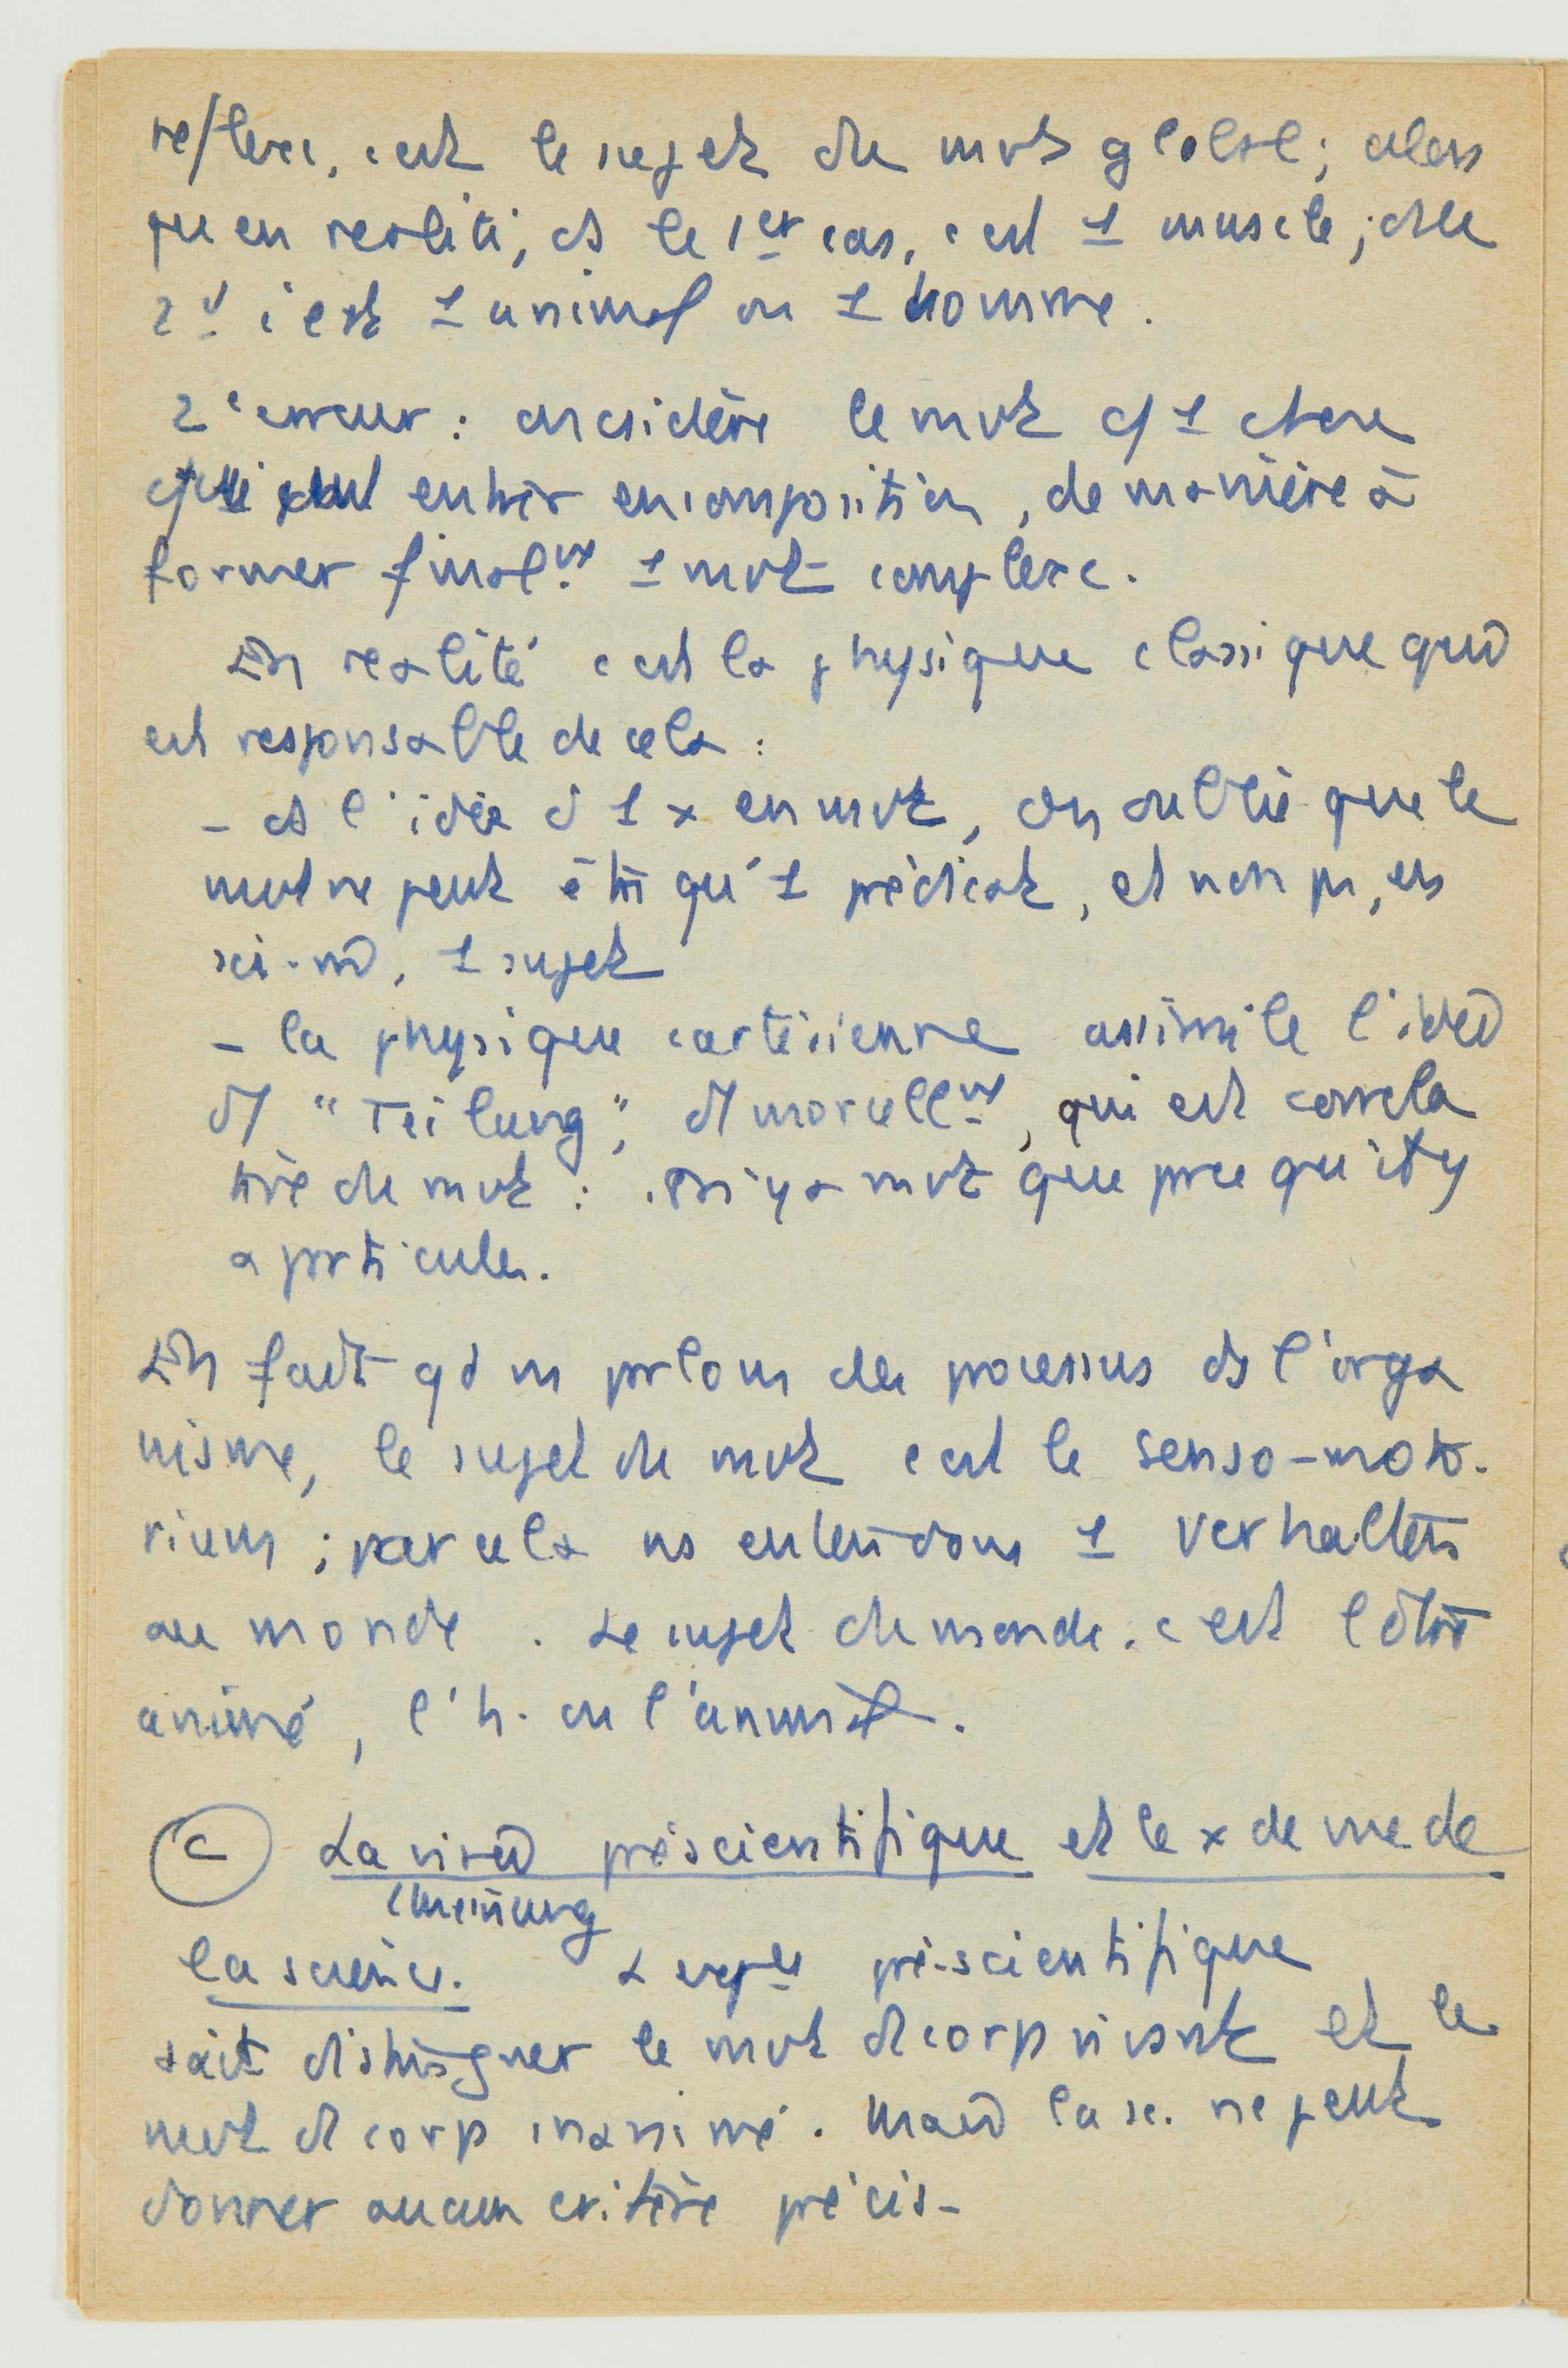 reflexe, c'est le sujet du mvt global; alors
qu'en realité, ds le 1er cas, c'est 1 muscle; ds le
2d c'est 1 animal ou 1 homme.
2e erreur: on csidère le mvt c/ 1 chose
qui peut entrer en composition, de manière à
former finalmt 1 mvt complexe.
En realité c'est la physique classique qui
est responsable de cela:
- ds l'idée d 1 x en mvt, on oublie que le
mvt ne peut être qu'1 prédicat, et non pr, en
soi-m, 1 sujet
- la physique cartésienne assimile l'idée
d "Teilung", d morcellmt, qui est correla
tive du mvt: il n'y a mvt que pce qu'il y
a particules.
En fait qd ns parlons des processus ds l'orga
nisme, le sujet du mvt c'est le senso-moto-
rium; par cela ns entendons 1 Verhalten
au monde. Le sujet du monde, c'est l'être
animé, l'h. ou l'animal.
(c) La visée préscientifique et le x de vue de
(meinung
la science. L'exp ce pré-scientifique
sait distinguer le mvt d corps vivant et le
mvt d corps inanimé. Mais la sc. ne peut
donner aucun critère précis-